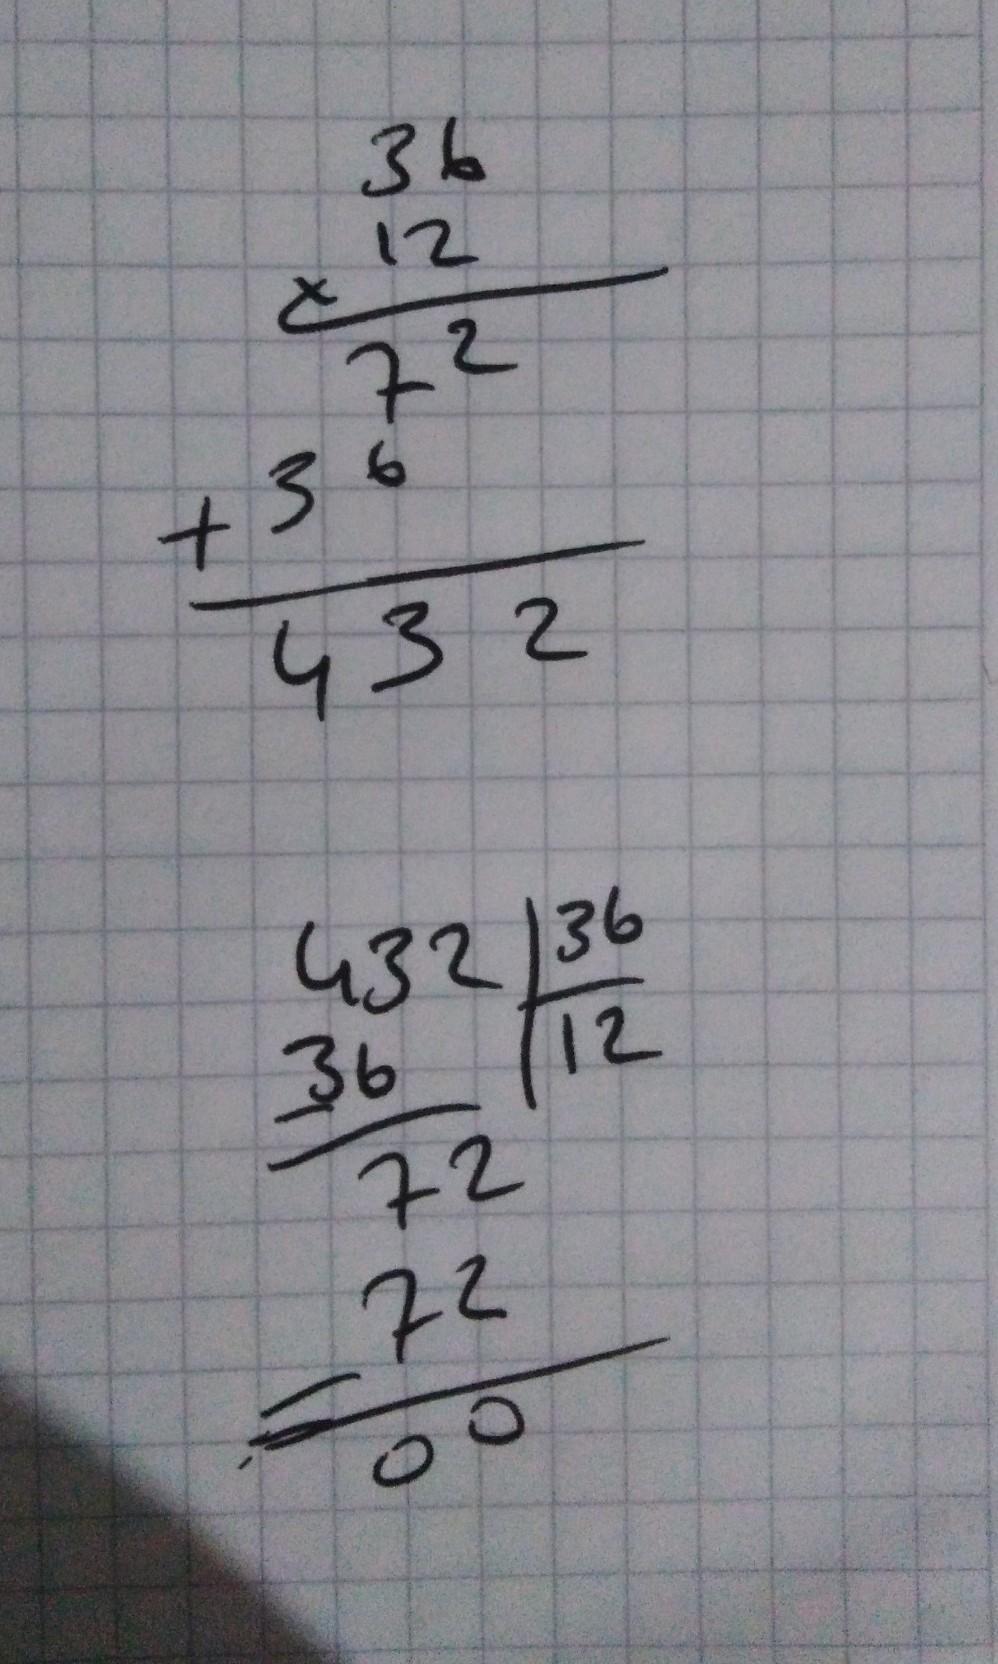 36
12
x
72
+ 36
432
432 | 36
36 | 12
72
72
00